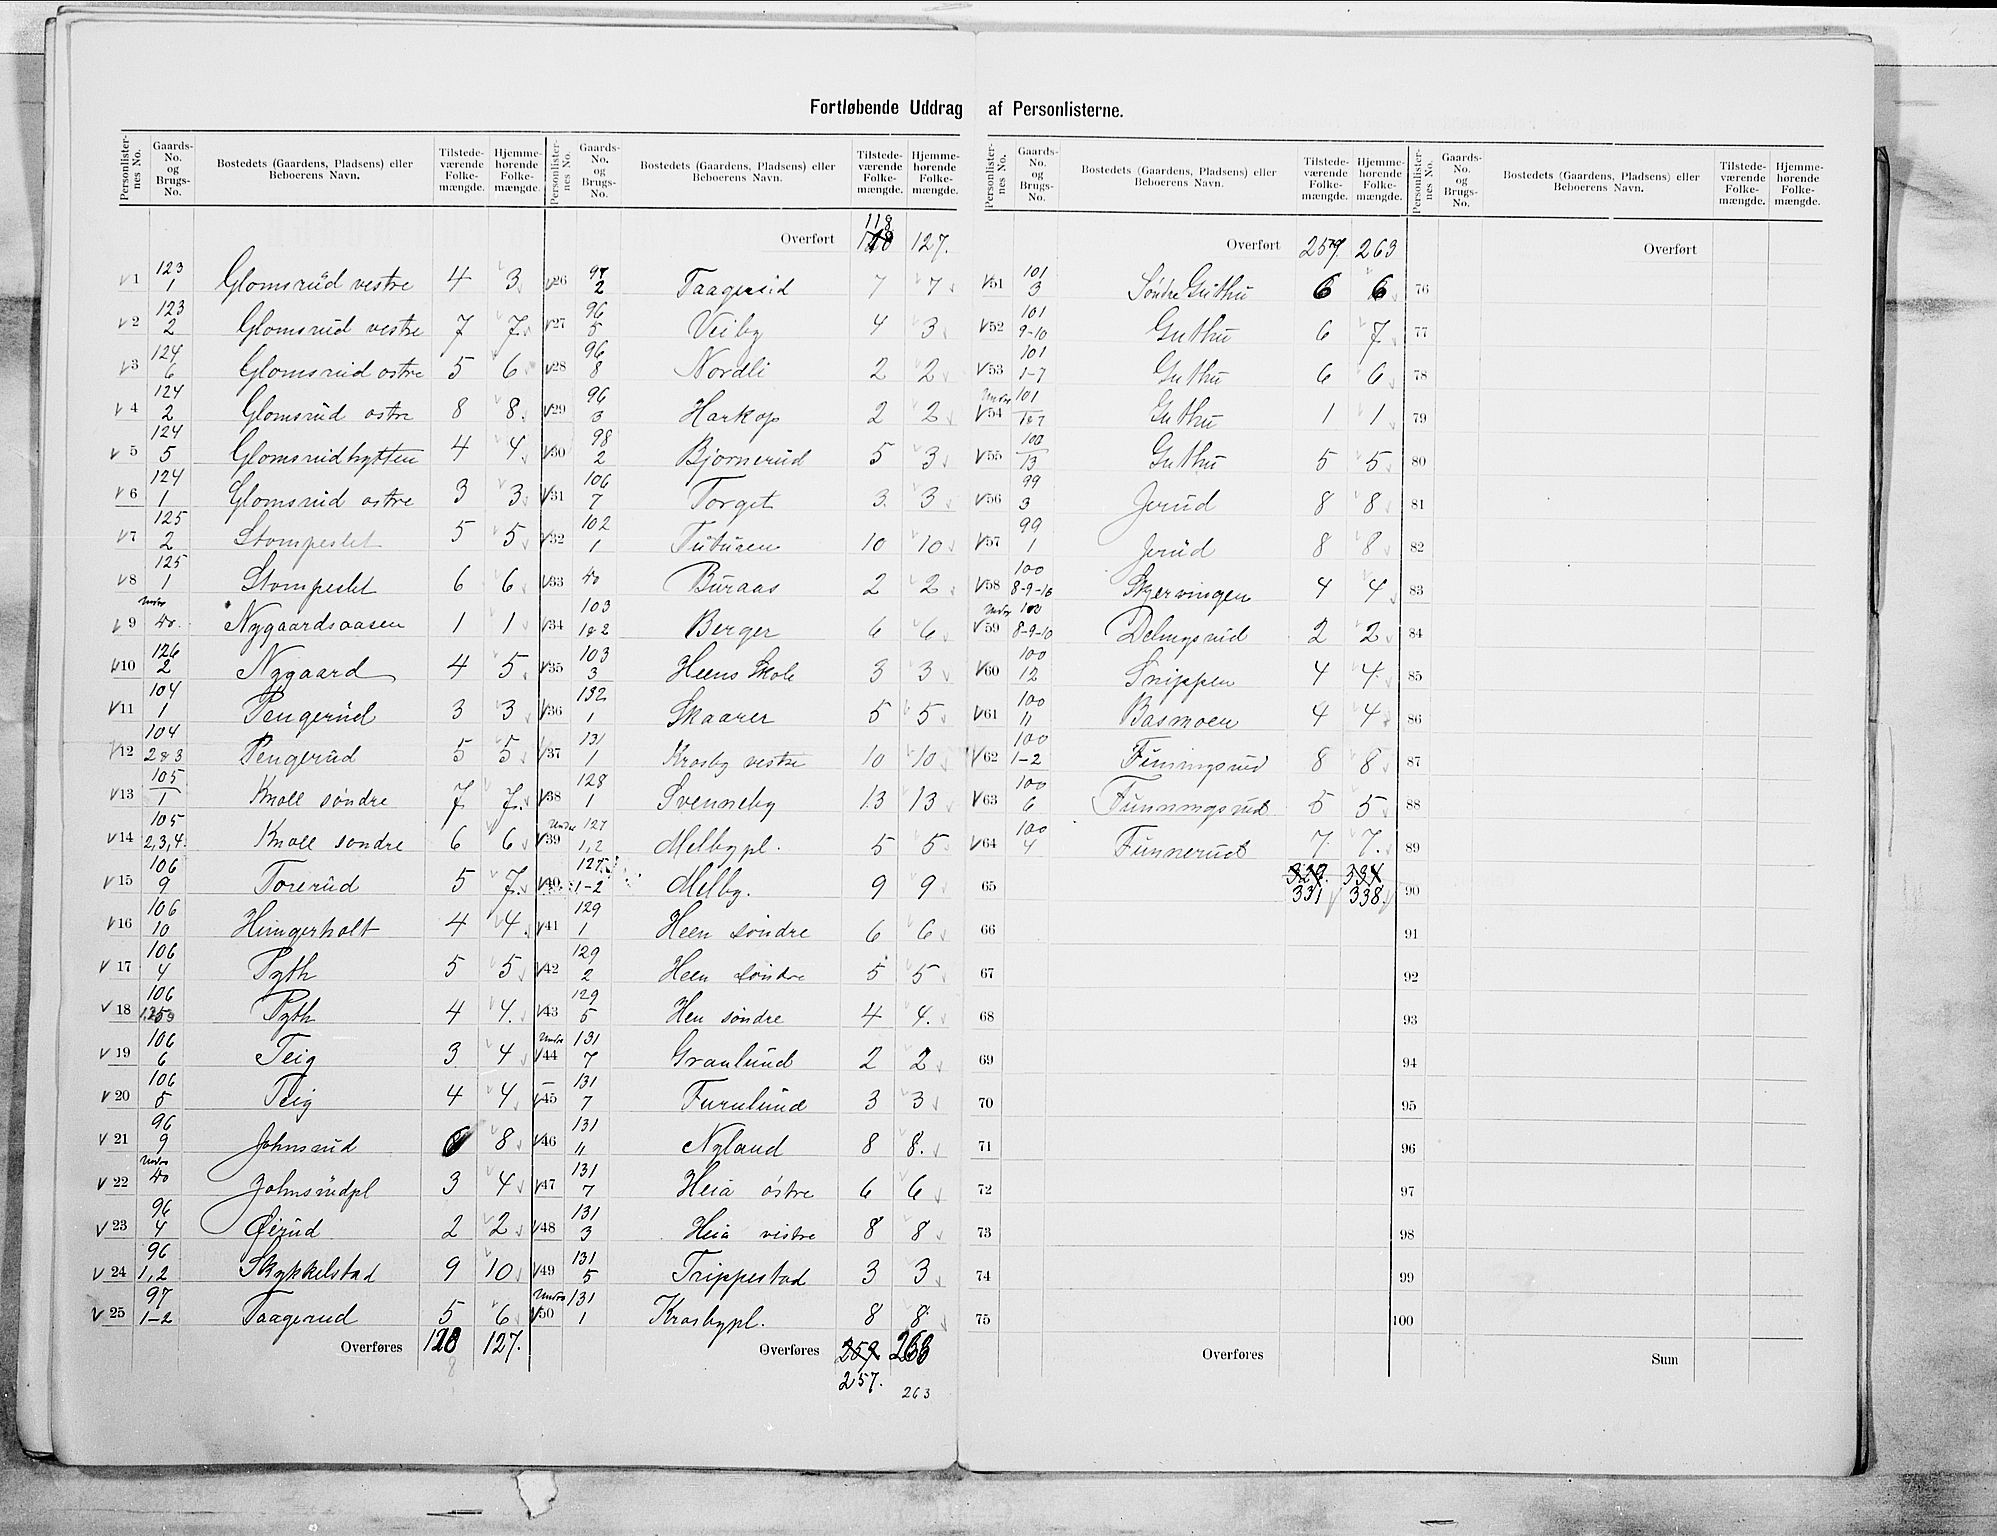 Fortløbende Uddrag af Personlisterne.
Personlisternes No. Gaards-No. og Brugs-No. Bostedets (Gaardens, Pladsens) eller Beboerens Navn. Tilstedeværende Folkemængde. Hjemmehørende Folkemængde.
1 123/1 Glomsrud vestre 4 3
2 123/2 Glomsrud vestre 7 7
3 124/6 Glomsrud østre 5 6
4 124/2 Glomsrud østre 8 8
5 124/5 Glomsrudhytten 4 4
6 124/1 Glomsrud østre 3 3
7 125/2 Stompeslet 5 5
8 125/1 Stompeslet 6 6
9 Under do. Nygaardsaasen 1 1
10 126/2 Nygaard 4 5
11 104/1 Pengerud 3 3
12 104/2&3 Pengerud 5 5
13 105/1 Knoll søndre 7 7
14 105/2,3,4 Knoll søndre 6 6
15 106/9 Torerud 5 7
16 106/10 Hungerholt 4 4
17 106/4 Pyth 5 5
18 106 Pyth 4 4
19 106/6 Teig 3 4
20 106/5 Teig 4 4
21 96/9 Johnsrud 8
22 Under do Johnsrudpl 3 4
23 96/4 Øirud 2 2
24 96/1,2 Skykkelstad 9 10
25 97/1-2 Taagerud 5 6
Overføres 127.
Personlisternes No. Gaards-No. og Brugs-No. Bostedets (Gaardens, Pladsens) eller Beboerens Navn. Tilstedeværende Folkemængde. Hjemmehørende Folkemængde.
118
Overført 127.
26 97/2 Taagerud 7 7
27 96/5 Veiby 4 3
28 96/8 Nordli 2 2
29 96/3 Harkop 2 2
30 98/2 Bjørnerud 5 3
31 106/7 Torget 3 3
32 102/1 Tuturen 10 10
33 do Buraas 2 2
34 103/1&2 Berger 6 6
35 103/3 Heens Skole 3 3
36 132/1 Skaarer 5 5
37 131/1 Krosby vestre 10 10
38 128/1 Svenneby 13 13
39 Under 127/1,2 Melbypl. 5 5
40 127/1-2 Melby. 9 9
41 129/1 Heen søndre 6 6
42 129/2 Heen søndre 5 5
43 129/5 Hen søndre 4 4
44 Under 131/7 Granlund 2 2
45 – 131/7 Furulund 3 3
46 131/11 Nyland 8 8
47 131/7 Heia østre 6 6
48 131/3 Heia vestre 8 8
49 131/5 Trippestad 3 3
50 Under 131/1 Krosbypl. 8 8
Overføres 259 263
257. 263
Personlisternes No. Gaards-No. og Brugs-No. Bostedets (Gaardens, Pladsens) eller Beboerens Navn. Tilstedeværende Folkemængde. Hjemmehørende Folkemængde.
Overført 257 263
51 101/3 Søndre Guthu 6 6
52 101/9-10 Guthu 6 7
53 101/1-7 Guthu 6 6
54 Under 101/1&7 Guthu 1 1
55 100/13 Guthu 5 5
56 99/3 Jerud 8 8
57 99/1 Jerud 8 8
58 100/8-9-10 Skjervingen 4 4
59 Under 100/8-9-10 Delingsrud 2 2
60 100/12 Snippen 4 4
61 100/11 Basmoen 4 4
62 100/1-2 Funningsrud 8 8
63 100/6 Funningsrud 5 5
64 100/4 Funnerud 7 7
65 329. 334
331 338
66
67
68
69
70
71
72
73
74
75
Overføres
Personlisternes No. Gaards-No. og Brugs-No. Bostedets (Gaardens, Pladsens) eller Beboerens Navn. Tilstedeværende Folkemængde. Hjemmehørende Folkemængde.
Overført
76
77
78
79
80
81
82
83
84
85
86
87
88
89
90
91
92
93
94
95
96
97
98
99
100
Sum